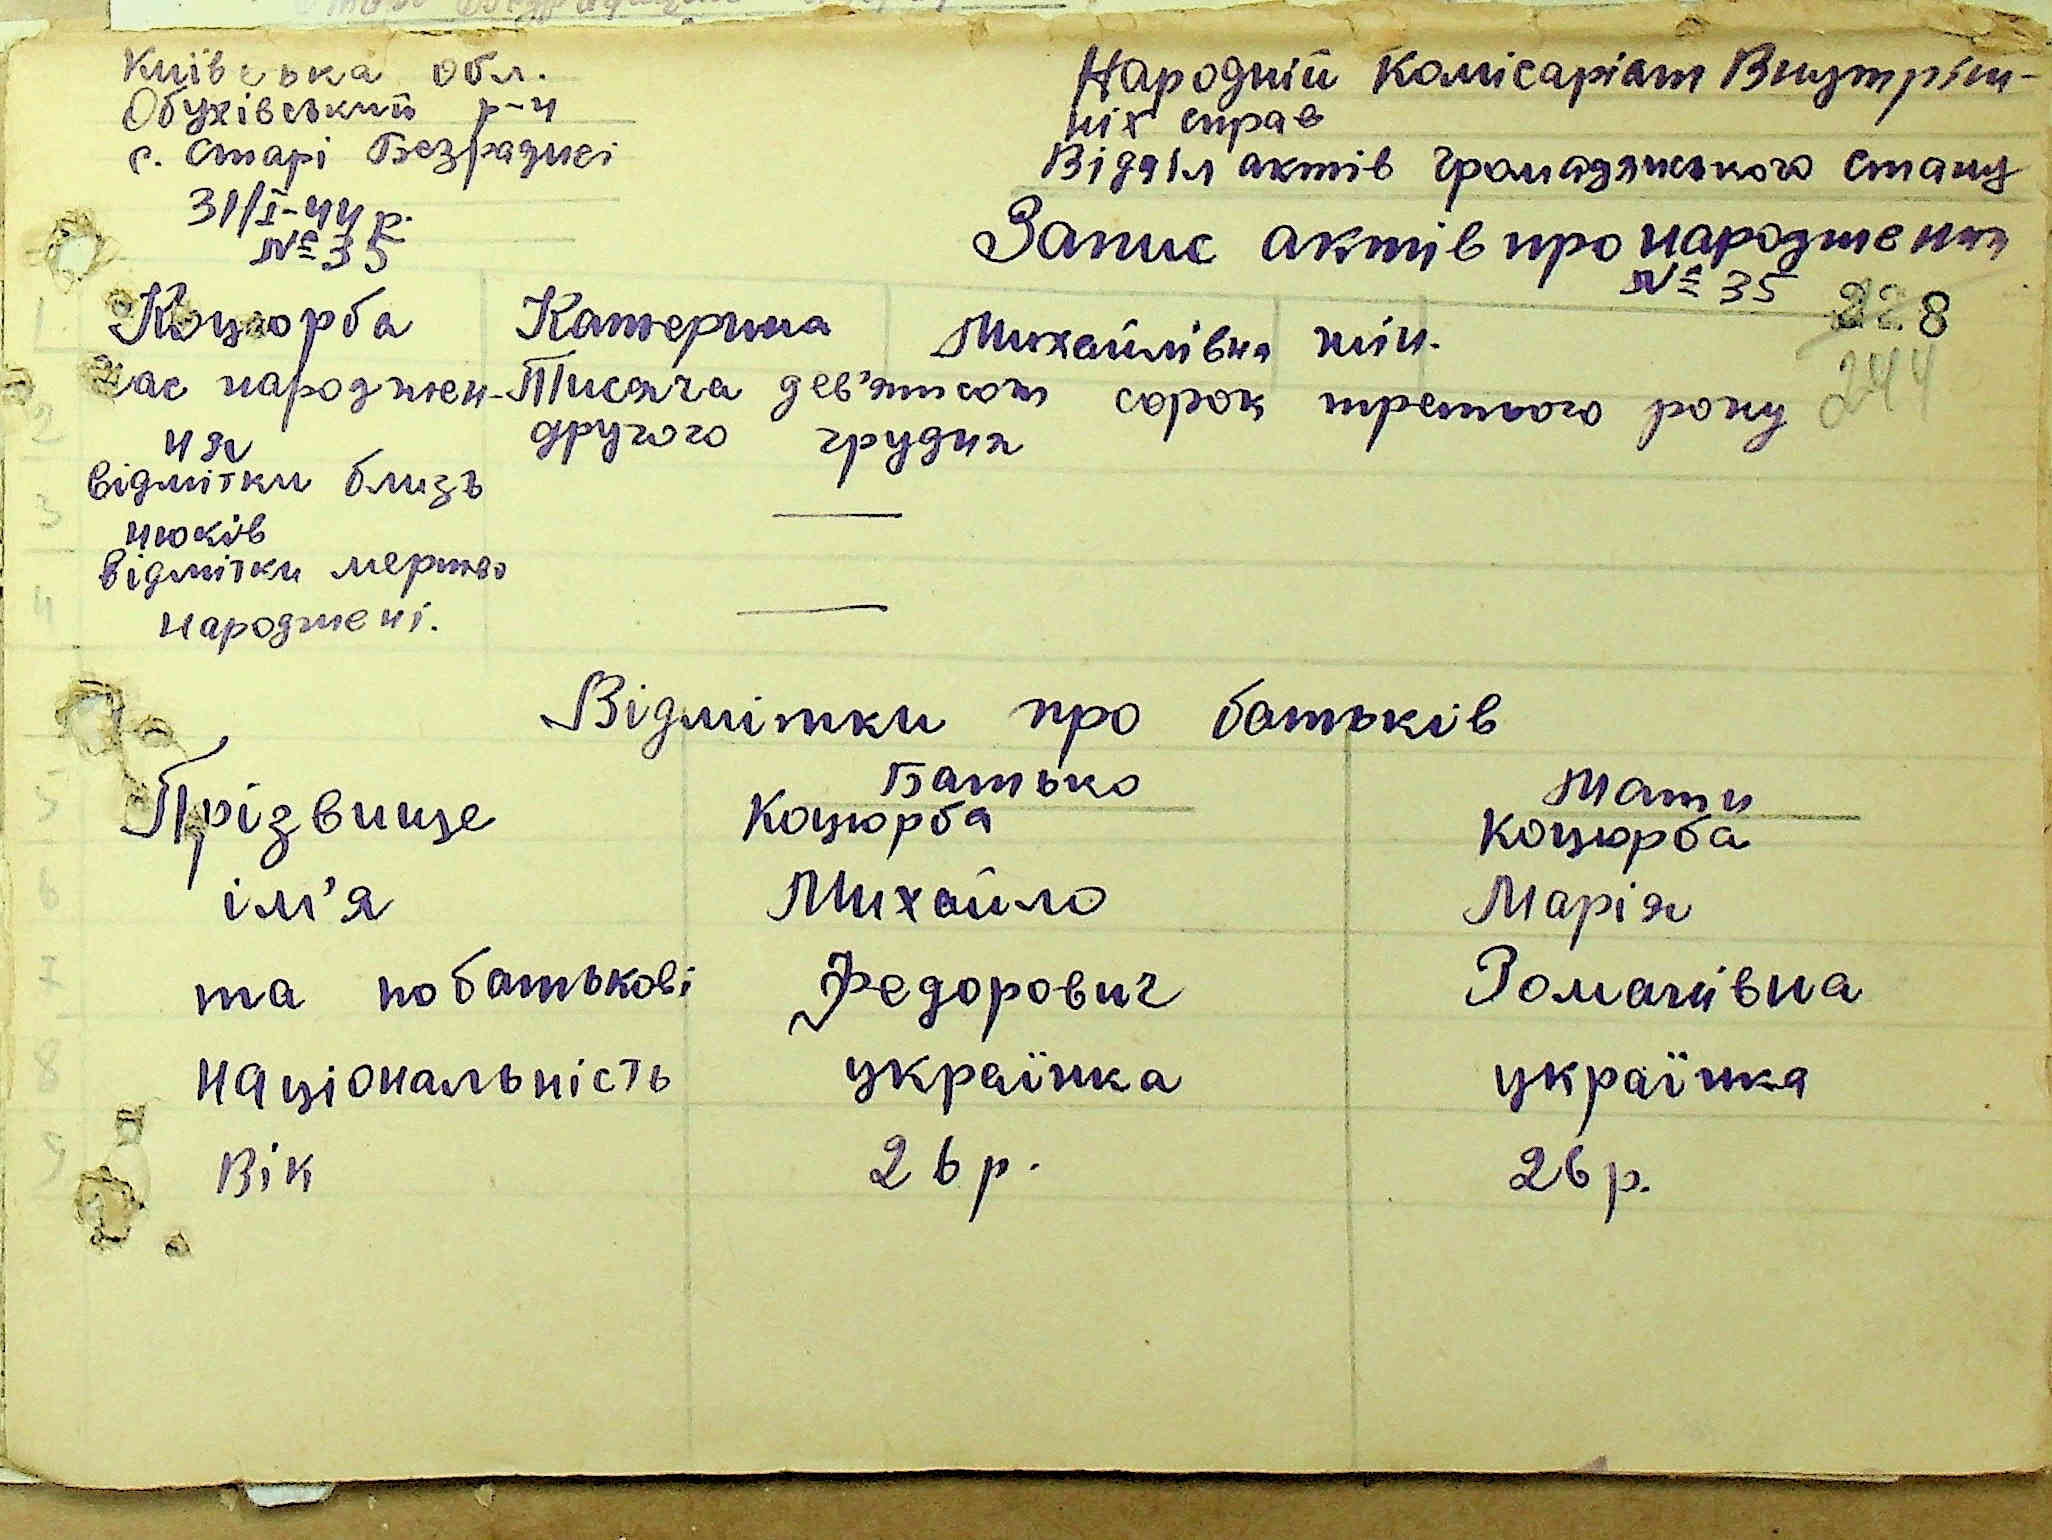 Київська обл.
Обухівський р-н
с. Старі Безрадичі
31/I-44 р.
№ 35
Народній Комісаріат Внутріш-
ніх справ
Відділ актів громадянського стану
Запис актів про народження
№ 35
228
244
1 Коцюрба Катерина Михайлівна жін.
2 Час народжен- Тисяча дев'ятсот сорок третього року
ня другого грудня
3 відмітки близь
нюків —
4 відмітки мертво
народжені. —
Відмітки про батьків
Батько Мати
5 Прізвище Коцюрба Коцюрба
6 ім'я Михайло Марія
7 та побатькові Федорович Романівна
8 національність українка українка
9 Вік 26 р. 26 р.